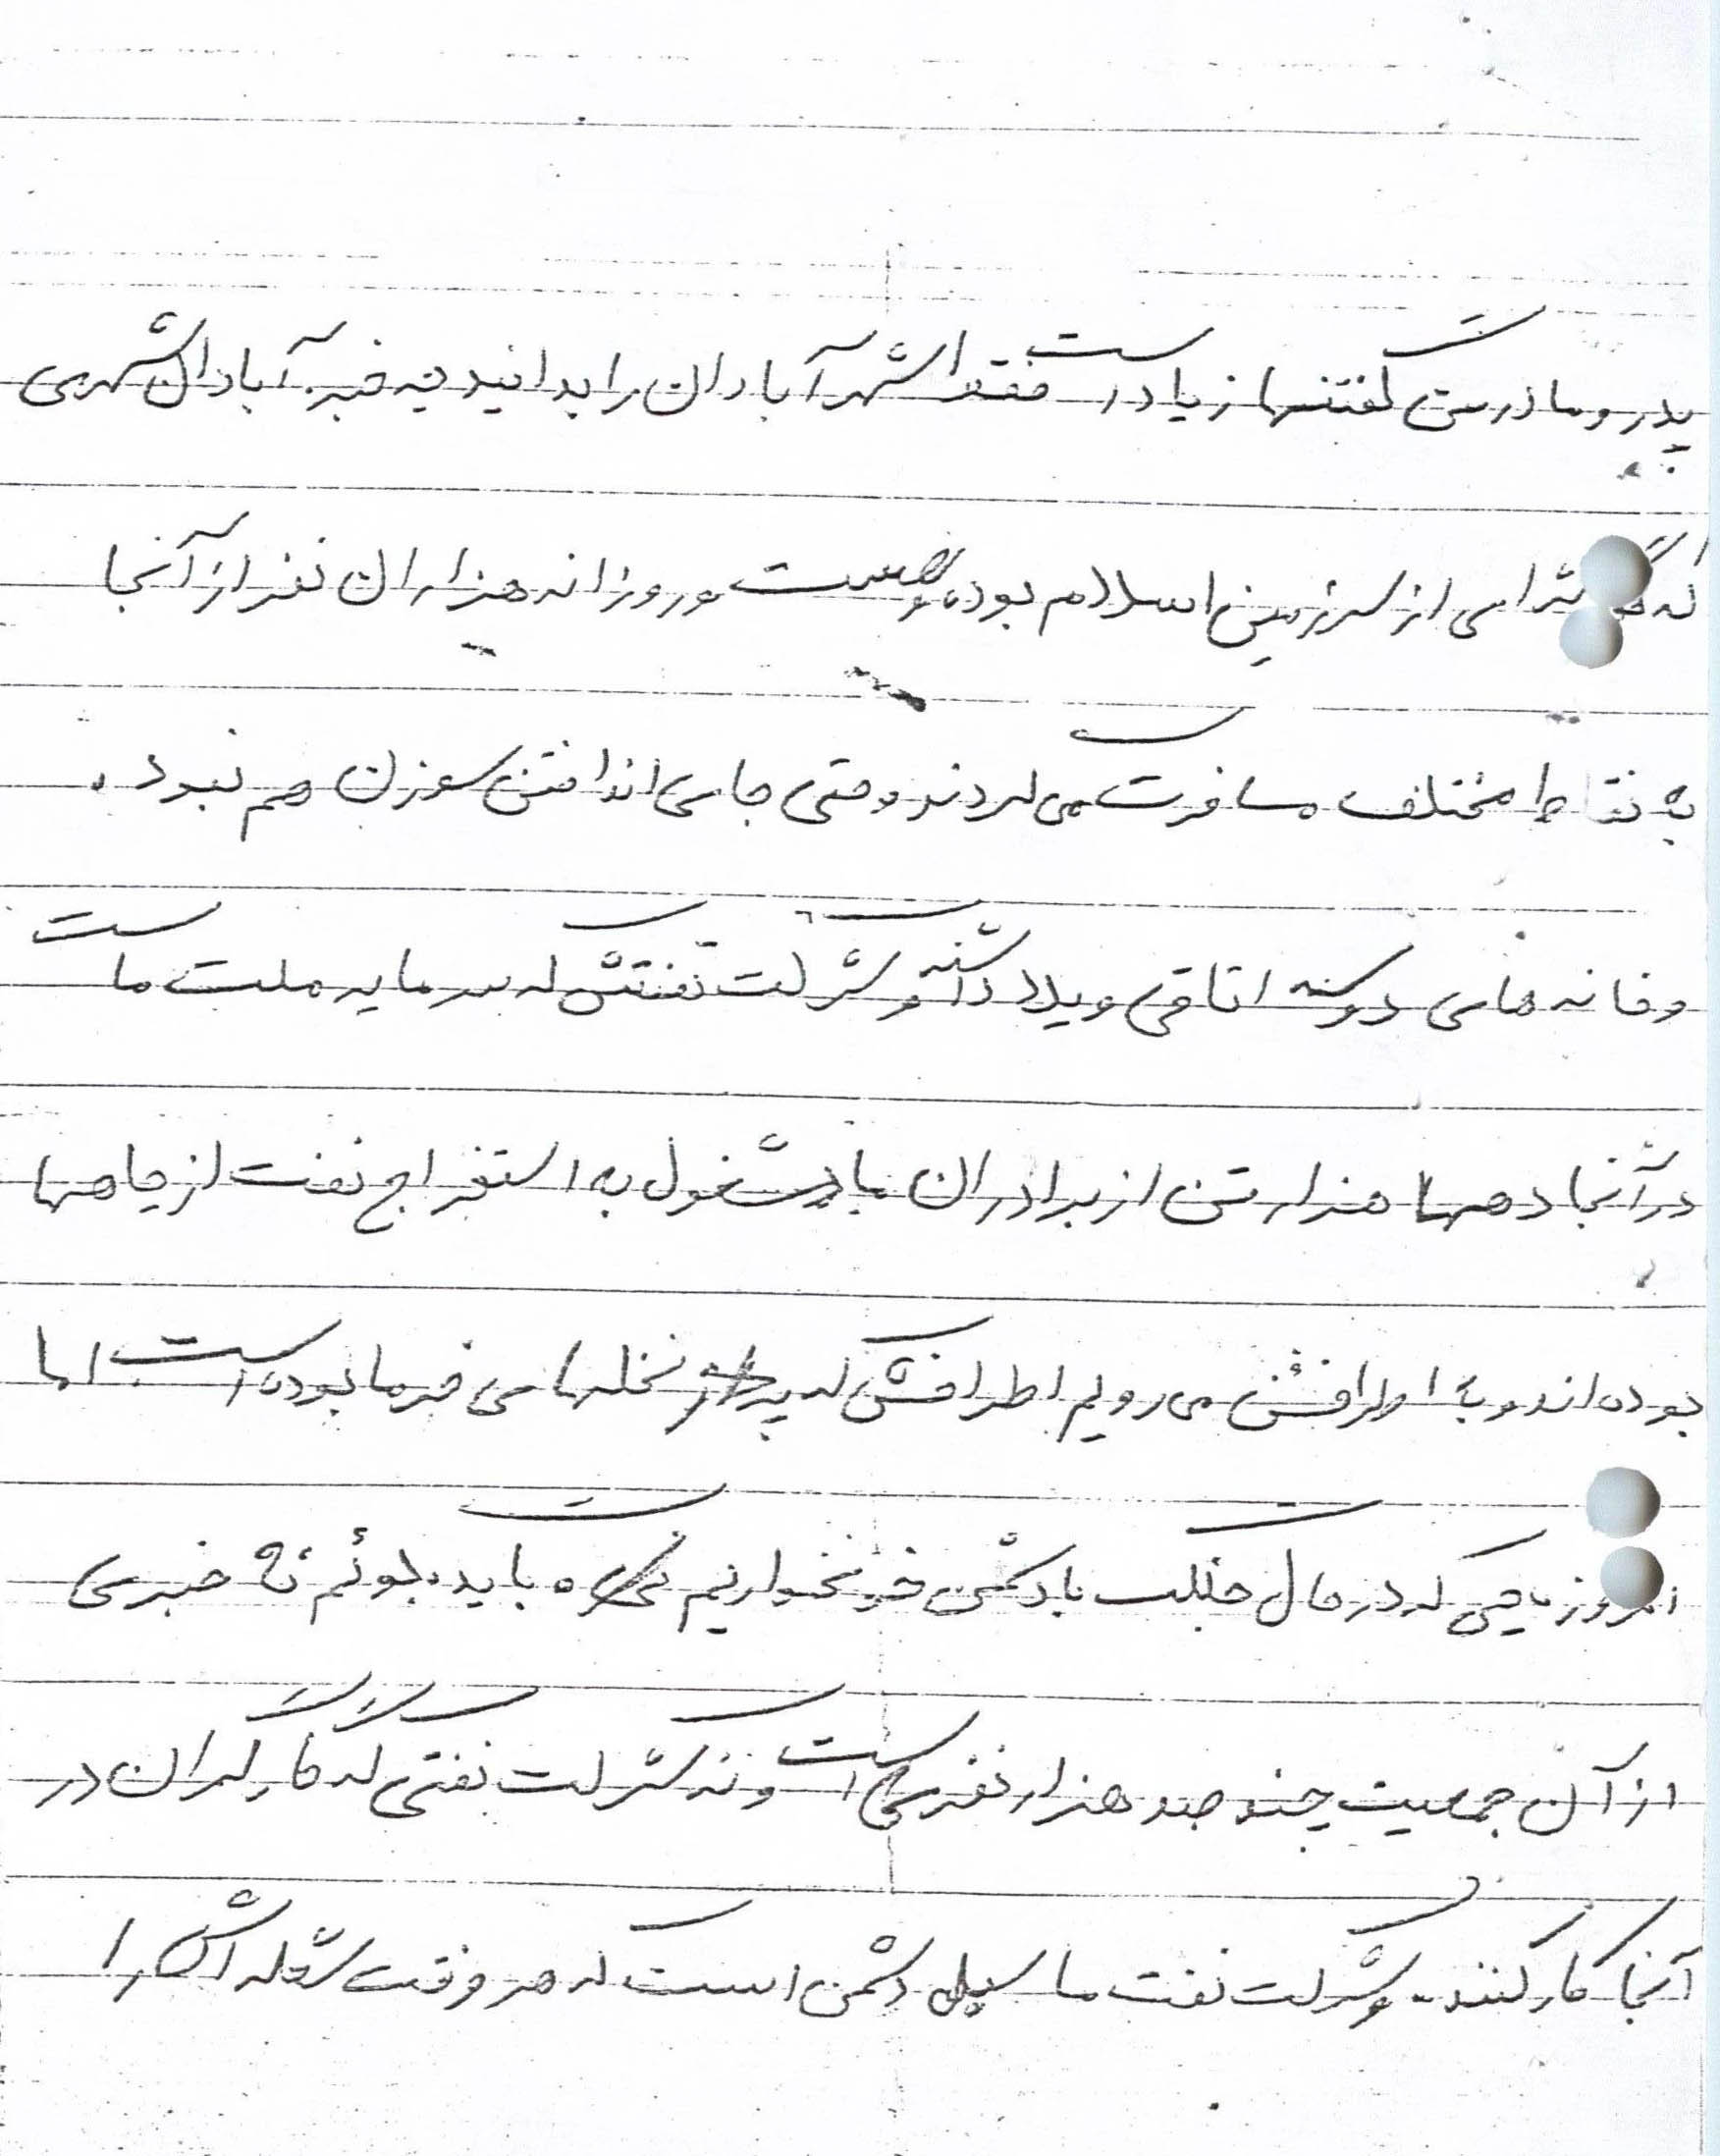 پدر و مادرم گفتنیها زیاد است فقط شهر آبادان را بدانید چه خبر. آبادان شهری
که گوشه‌ای از سرزمین اسلام بوده و هست و روزانه هزاران نفر از آنجا
به نقاط مختلف مسافرت می‌کردند و حتی جای انداختن سوزن هم نبود.
و خانه‌های دو سه اتاقی ویلا داشته و شرکت نفتش که سرمایه ملت ماست
در آنجا دهها هزار تن از برادران ما مشغول به استخراج نفت از چاهها
بوده‌اند و به اطرافش می‌رویم اطرافش که پر از نخلهای خرما بوده است اما
امروز مایی که در حال جنگ با دشمن خونخواریم باید بگوئیم نه خبری
از آن جمعیت چند صد هزار نفری است و نه شرکت نفتی که کارگران در
آنجا کار کنند. و شرکت نفت ما سیبل دشمن است که هر وقت شعله‌اش را